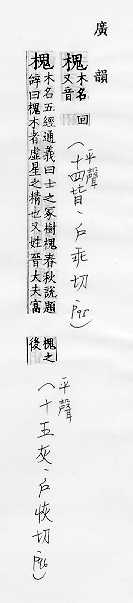 廣韻
槐
木名
又音回
(平聲
十四皆、戶乖切 P95)
槐
木名五經通義曰士之冢樹槐春秋說題
辭曰槐木者虛星之精也又姓晉大夫富
槐之
後
(平聲
十五灰、戶恢切 P96)